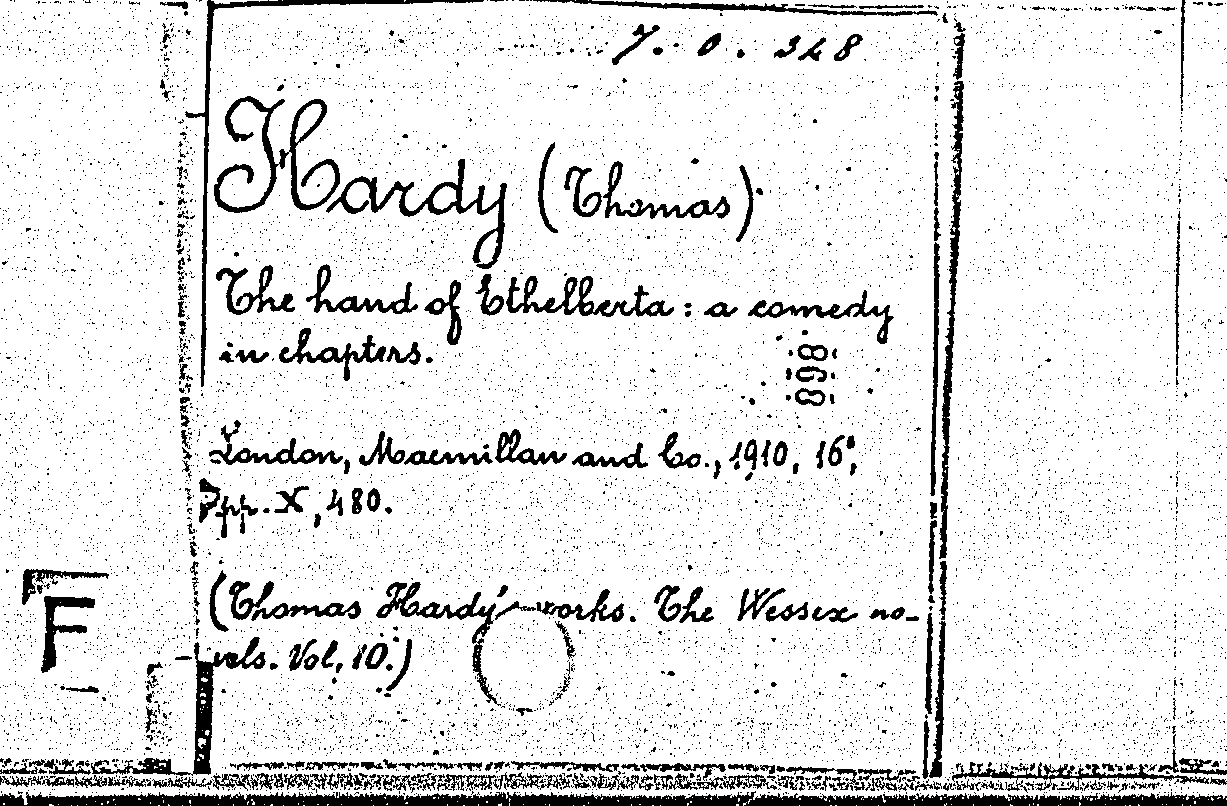 7. 0. 328
Hardy (Thomas)
The hand of Ethelberta : a comedy
in chapters.
898
London, Macmillan and Co., 1910, 16°,
pp. X, 480.
(Thomas Hardy's works. The Wessex no-
vels. Vol. 10.)
F